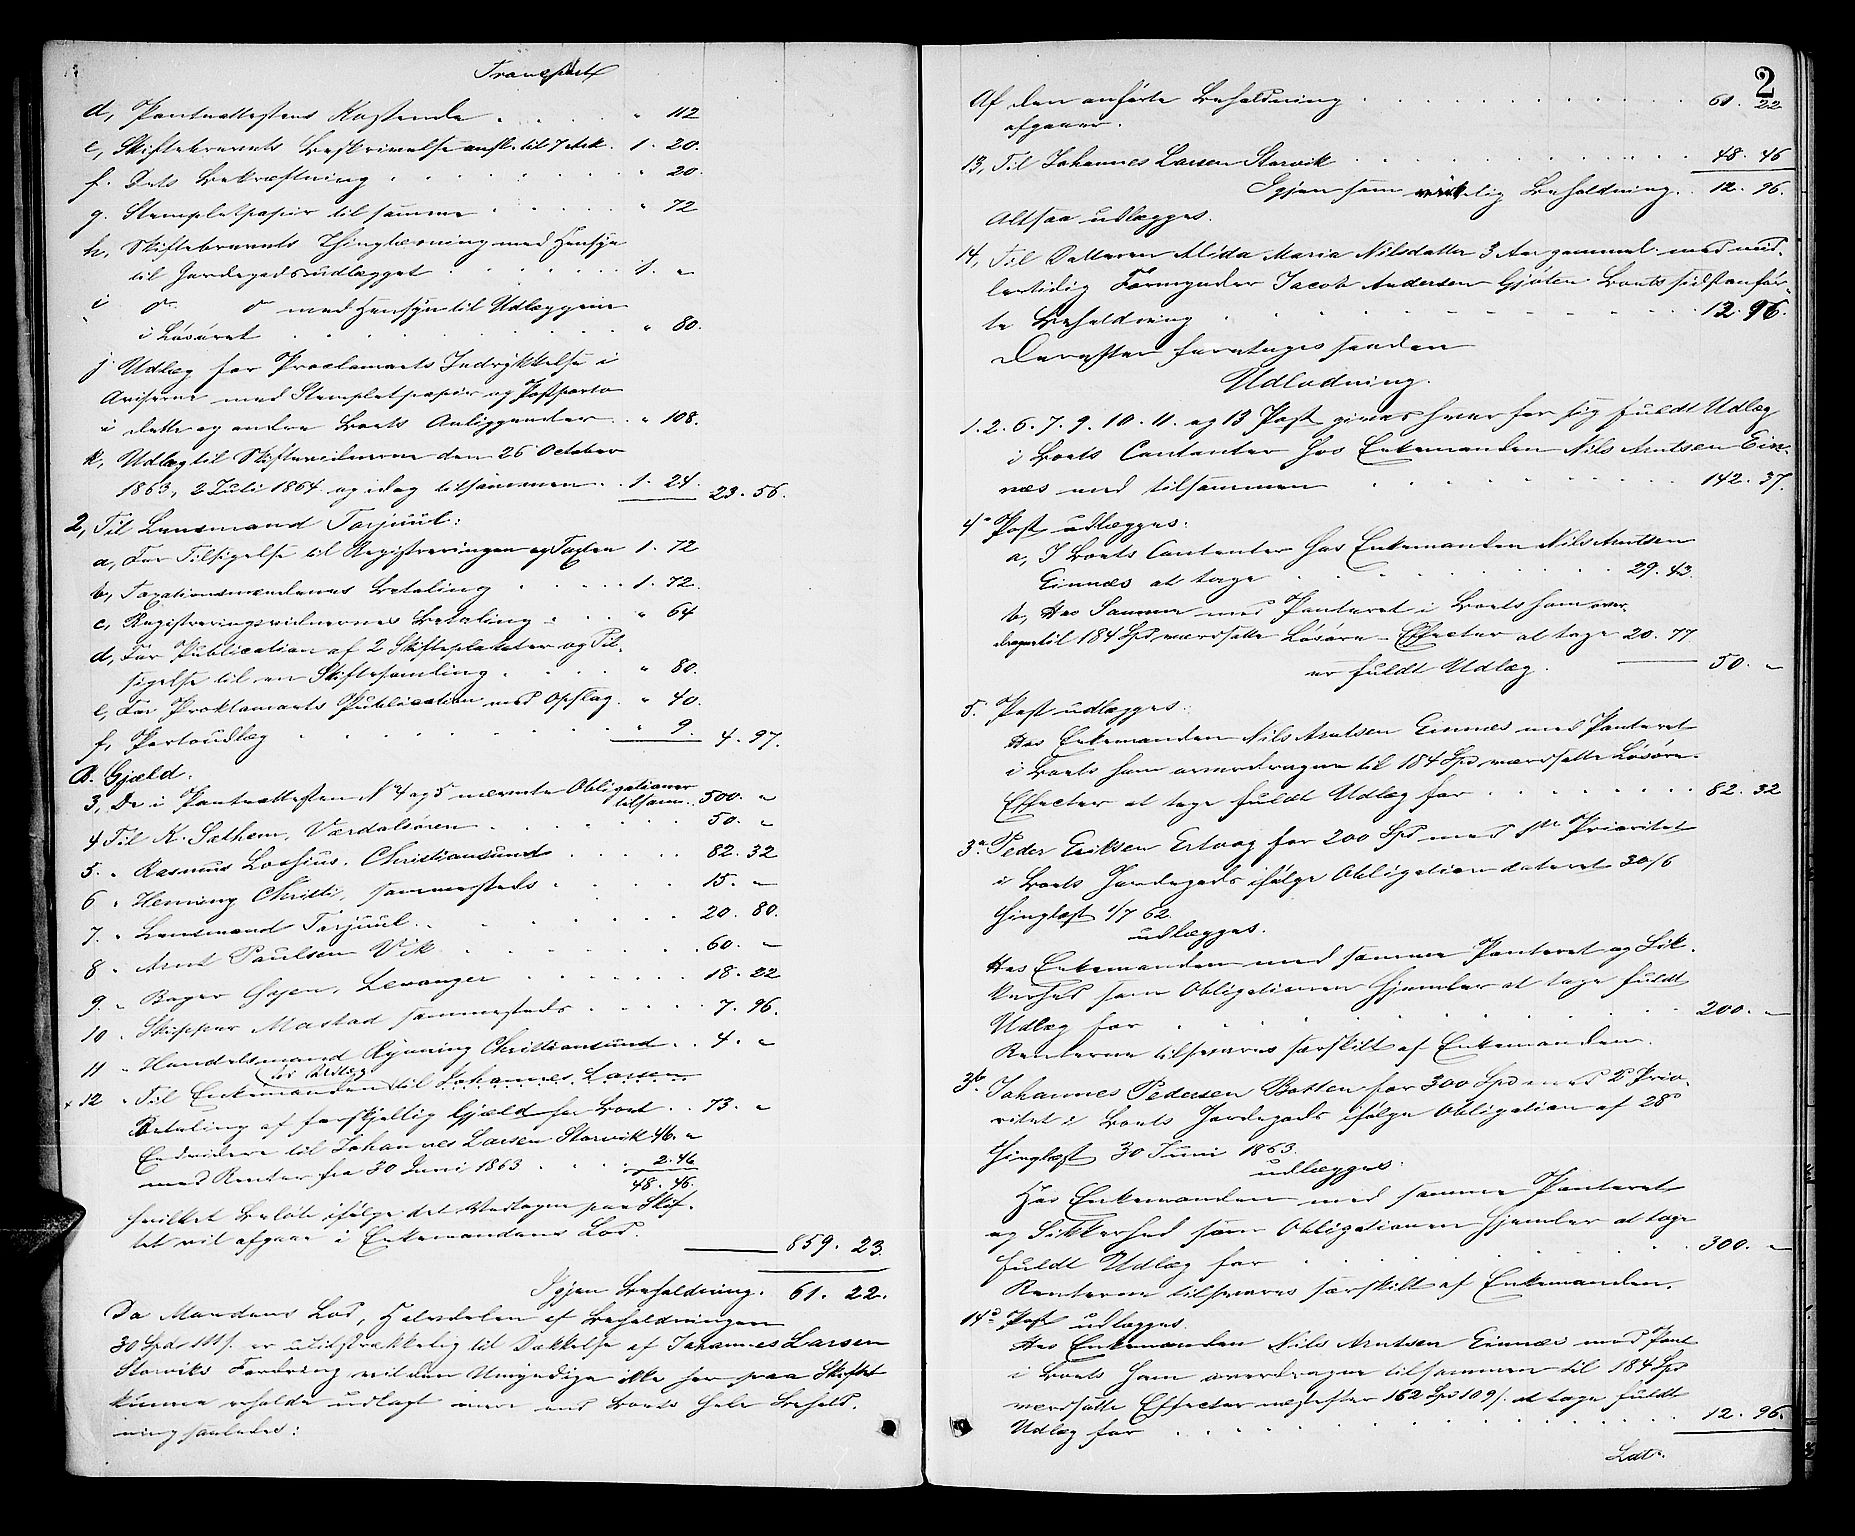 Transport
d, Panteattestens Kostende . . . " 112
e, Skiftebrevets Beskrivelse ansl. til 7 Ark. 1. 20.
f. Dets Bekræftning . . . " 20.
g. Stempletpapir til samme . . . " 72
h, Skiftebrevets Thinglæsning med Hensyn
til Jordegodsudlægget . . . 1. "
i do. do med Hensyn til Udlæggene
i Løsøret . . . " 80.
j. Udlæg for Proclamaets Indrykkelse i
Aviserne med Stempletpapir og Postporto
i dette og andre Boets Anliggender . . " 108.
k, Udlæg til Skiftevidnerne den 26 October
1863, 2 Juli 1864 og idag tilsammen . . 1. 24. 23. 56.
2, Til Lensmand Tarjuul:
a, For Tilsigelse til Registreringen og Taxten 1. 72
b, Taxationsmændenes Betaling . . . 1. 72.
c, Registreringsvidnernes Betaling . . . " 64
d, For Publication af 2 Skifteplacater og Til-
sigelse til en Skiftesamling . . . " 80.
e, For Proklamaets Publication med Opslag . " 40.
f, Portoudlæg . . . " 9. 4. 97.
B. Gjæld.
3, De i Panteattesten N 4 og 5 nævnte Obligationer
tilsam. . 500. "
4 Til K. Sæthem, Værdalsøren . . . 50. "
5. " Rasmus Lossius, Christiansund . . . 82. 32
6 " Henning Christi, sammesteds . . . 15. "
7. " Lensmand Tarjuul . . . 20. 80.
8 " Arnt Paulsen Vik . . . 60. "
9. " Bager Hojem, Levanger . . . 18. 22
10 " Skipper Mastad sammesteds . . . 7. 96.
11 " Handelsmand Rynning Christiansund . . 4. "
x 12 " Til Enkemanden til Johannes Larsen
Betaling af forskjellig Gjæld for Boet . . 73. "
Endvidere til Johannes Larsen Storvik 46. "
med Renter fra 30 Juni 1863 . . . 2. 46
48. 46.
hvilket Beløb ifølge det Vedtagne paa Skif-
tet vil afgaae i Enkemandens Lod.
859. 23.
Igjen Beholdning . 61. 22.
Da Mandens Lod, Halvdelen af Beholdningen
30 Spd 71 s. er utilstrækkelig til Dækkelse af Johannes Larsen
Storviks Fordring vil den Umyndige ikke her paa Skiftet
kunne erholde udlagt mere end Boets hele Behold-
ning saaledes:
2
Af den anførte Beholdning . . . 61. 22
afgaaer.
13, Til Johannes Larsen Storvik . . . 48. 46
Igjen som virkelig Beholdning . . 12. 96.
Altsaa udlægges.
14, Til Datteren Alida Maria Nilsdatter 3 Aar gammel med mid-
lertidig Formynder Jacob Andersen Gjøten Boets sidstanfør-
te Beholdning . . . 12. 96.
Derefter foretages saaden
Udlodning.
1. 2. 6. 7. 9. 10. 11. og 13 Post gives hver for sig fuldt Udlæg
i Boets Contanter hos Enkemanden Nils Arntsen Ein-
næs med tilsammen . . . 142. 37.
4de Post udlægges:
a, I Boets Contanter hos Enkemanden Nils Arntsen
Einnæs at tage . . . 29. 43.
b, Hos Samme med Panteret i Boets ham over-
dragne til 184 Spd værdsatte Løsøre-Effecter at tage 20. 77
er fuldt Udlæg. 50. "
5. Post udlægges:
Hos Enkemanden Nils Arntsen Einnæs med Panteret
i Boets ham overdragne til 184 Spd værdsatte Løsøre-
Effecter at tage fuldt Udlæg for . . . 82. 32
3a. Peder Eriksen Ertvaag for 200 Spd med 1ste Prioritet
i Boets Jordegods ifølge Obligation dateret 30/6
thinglæst 1/7 62.
udlægges.
Hos Enkemanden med samme Panteret og Sik-
kerhed som Obligationen hjemler at tage fuldt
Udlæg for . . . 200. "
Renterne tilsvares særskilt af Enkemanden.
3b. Johannes Pedersen Botten for 300 Spd med 2 Prio-
ritet i Boets Jordegods ifølge Obligation af 28de
thinglæst 30 Juni 1863.
udlægges.
Hos Enkemanden med samme Panteret
og Sikkerhed som Obligationen hjemler at tage
fuldt Udlæg for . . . 300. "
Renterne tilsvares særskilt af Enkemanden.
14de Post udlægges.
Hos Enkemanden Nils Arntsen Einnæs med Pant
i Boets ham overdragne tilsammen til 184 Spd
værdsatte Effecter næstefter 162 Spd 109 s. at tage fuldt
Udlæg for . . . 12. 96.
Lat.